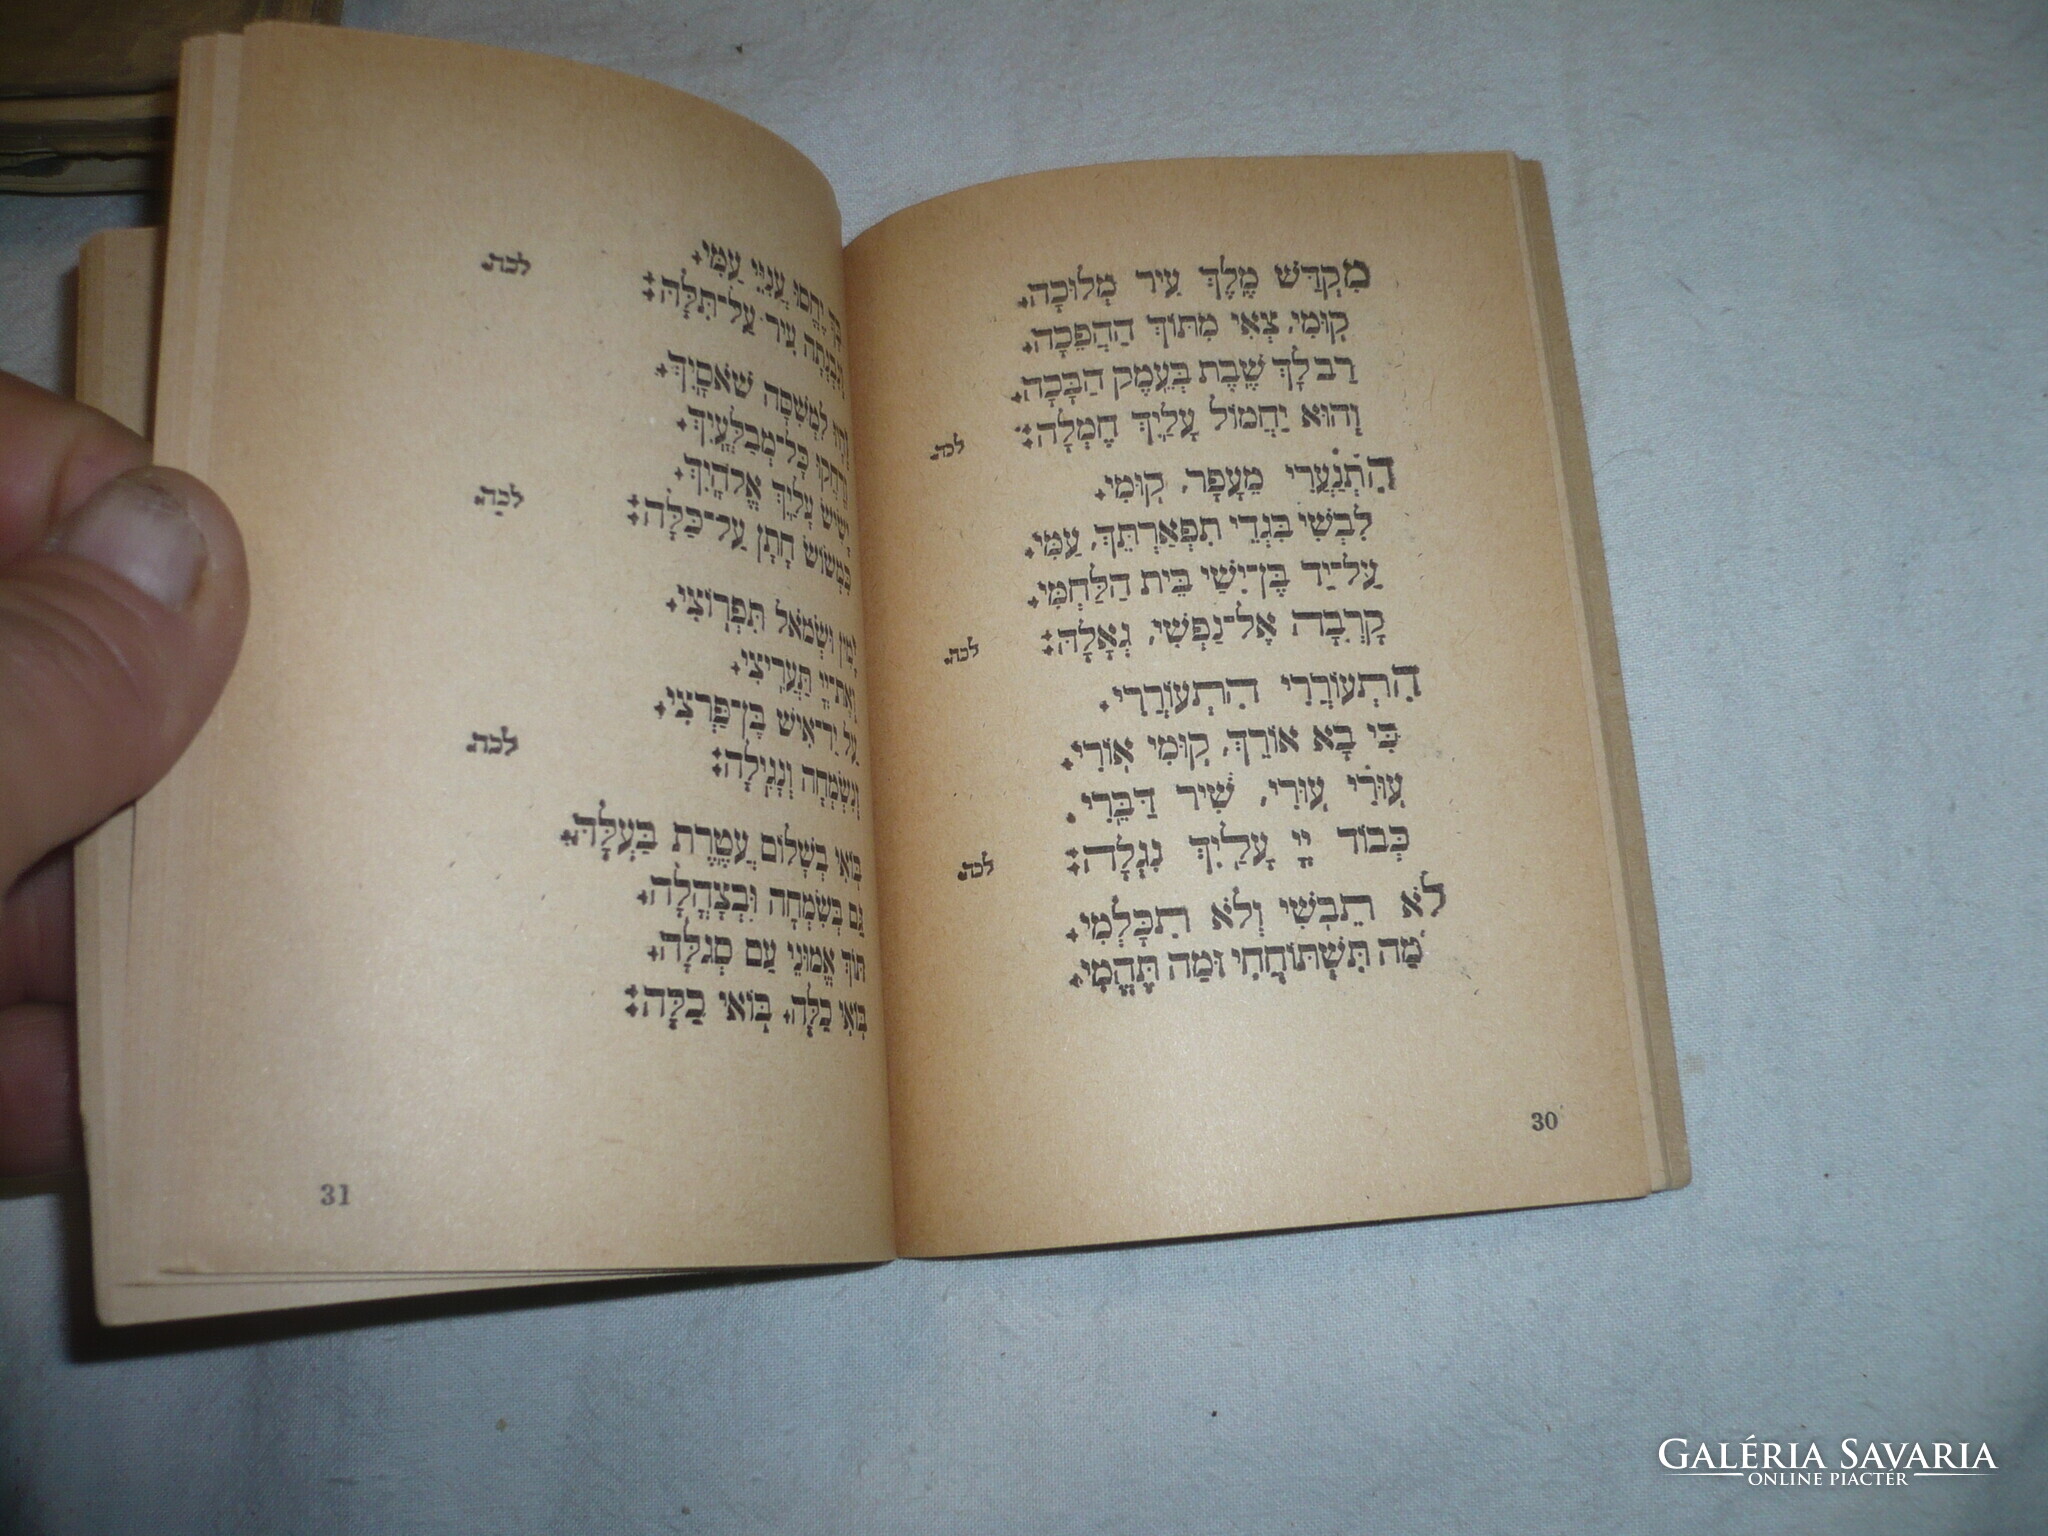 מִקְדַּשׁ מֶלֶךְ עִיר מְלוּכָה.
קוּמִי, צְאִי מִתּוֹךְ הַהֲפֵכָה.
רַב לָךְ שֶׁבֶת בְּעֵמֶק הַבָּכָה.
וְהוּא יַחֲמוֹל עָלַיִךְ חֶמְלָה: לכה.
הִתְנַעֲרִי מֵעָפָר, קוּמִי.
לִבְשִׁי בִּגְדֵי תִפְאַרְתֵּךְ, עַמִּי.
עַל־יַד בֶּן־יִשַׁי בֵּית הַלַּחְמִי.
קָרְבָה אֶל־נַפְשִׁי, גְאָלָהּ: לכה.
הִתְעוֹרְרִי הִתְעוֹרְרִי.
כִּי בָא אוֹרֵךְ, קוּמִי אוֹרִי.
עוּרִי עוּרִי, שִׁיר דַּבֵּרִי.
כְּבוֹד יְיָ עָלַיִךְ נִגְלָה: לכה.
לֹא תֵבשִׁי וְלֹא תִכָּלְמִי.
מַה תִּשְׁתּוֹחֲחִי וּמַה תֶּהֱמִי.
30
יֶחֱסוּ עֲנִיֵּי עַמִּי.
וְנִבְנְתָה עִיר עַל־תִּלָּהּ: לכה.
לִמְשִׁסָּה שֹׁאסָיִךְ.
כָּל־מְבַלְּעָיִךְ.
יָשִׂישׂ עָלַיִךְ אֱלֹהָיִךְ.
כִּמְשׂוֹשׂ חָתָן עַל־כַּלָּה: לכה.
יָמִין וּשְׂמֹאל תִּפְרוֹצִי.
וְאֶת־יְיָ תַּעֲרִיצִי.
עַל יַד־אִישׁ בֶּן־פַּרְצִי.
וְנִשְׂמְחָה וְנָגִילָה: לכה.
בּוֹאִי בְשָׁלוֹם עֲטֶרֶת בַּעְלָהּ.
גַּם בְּשִׂמְחָה וּבְצָהֳלָה.
תּוֹךְ אֱמוּנֵי עַם סְגֻלָּה.
בּוֹאִי כַלָּה, בּוֹאִי כַלָּה:
31
GALÉRIA SAVARIA
ONLINE PIACTÉR